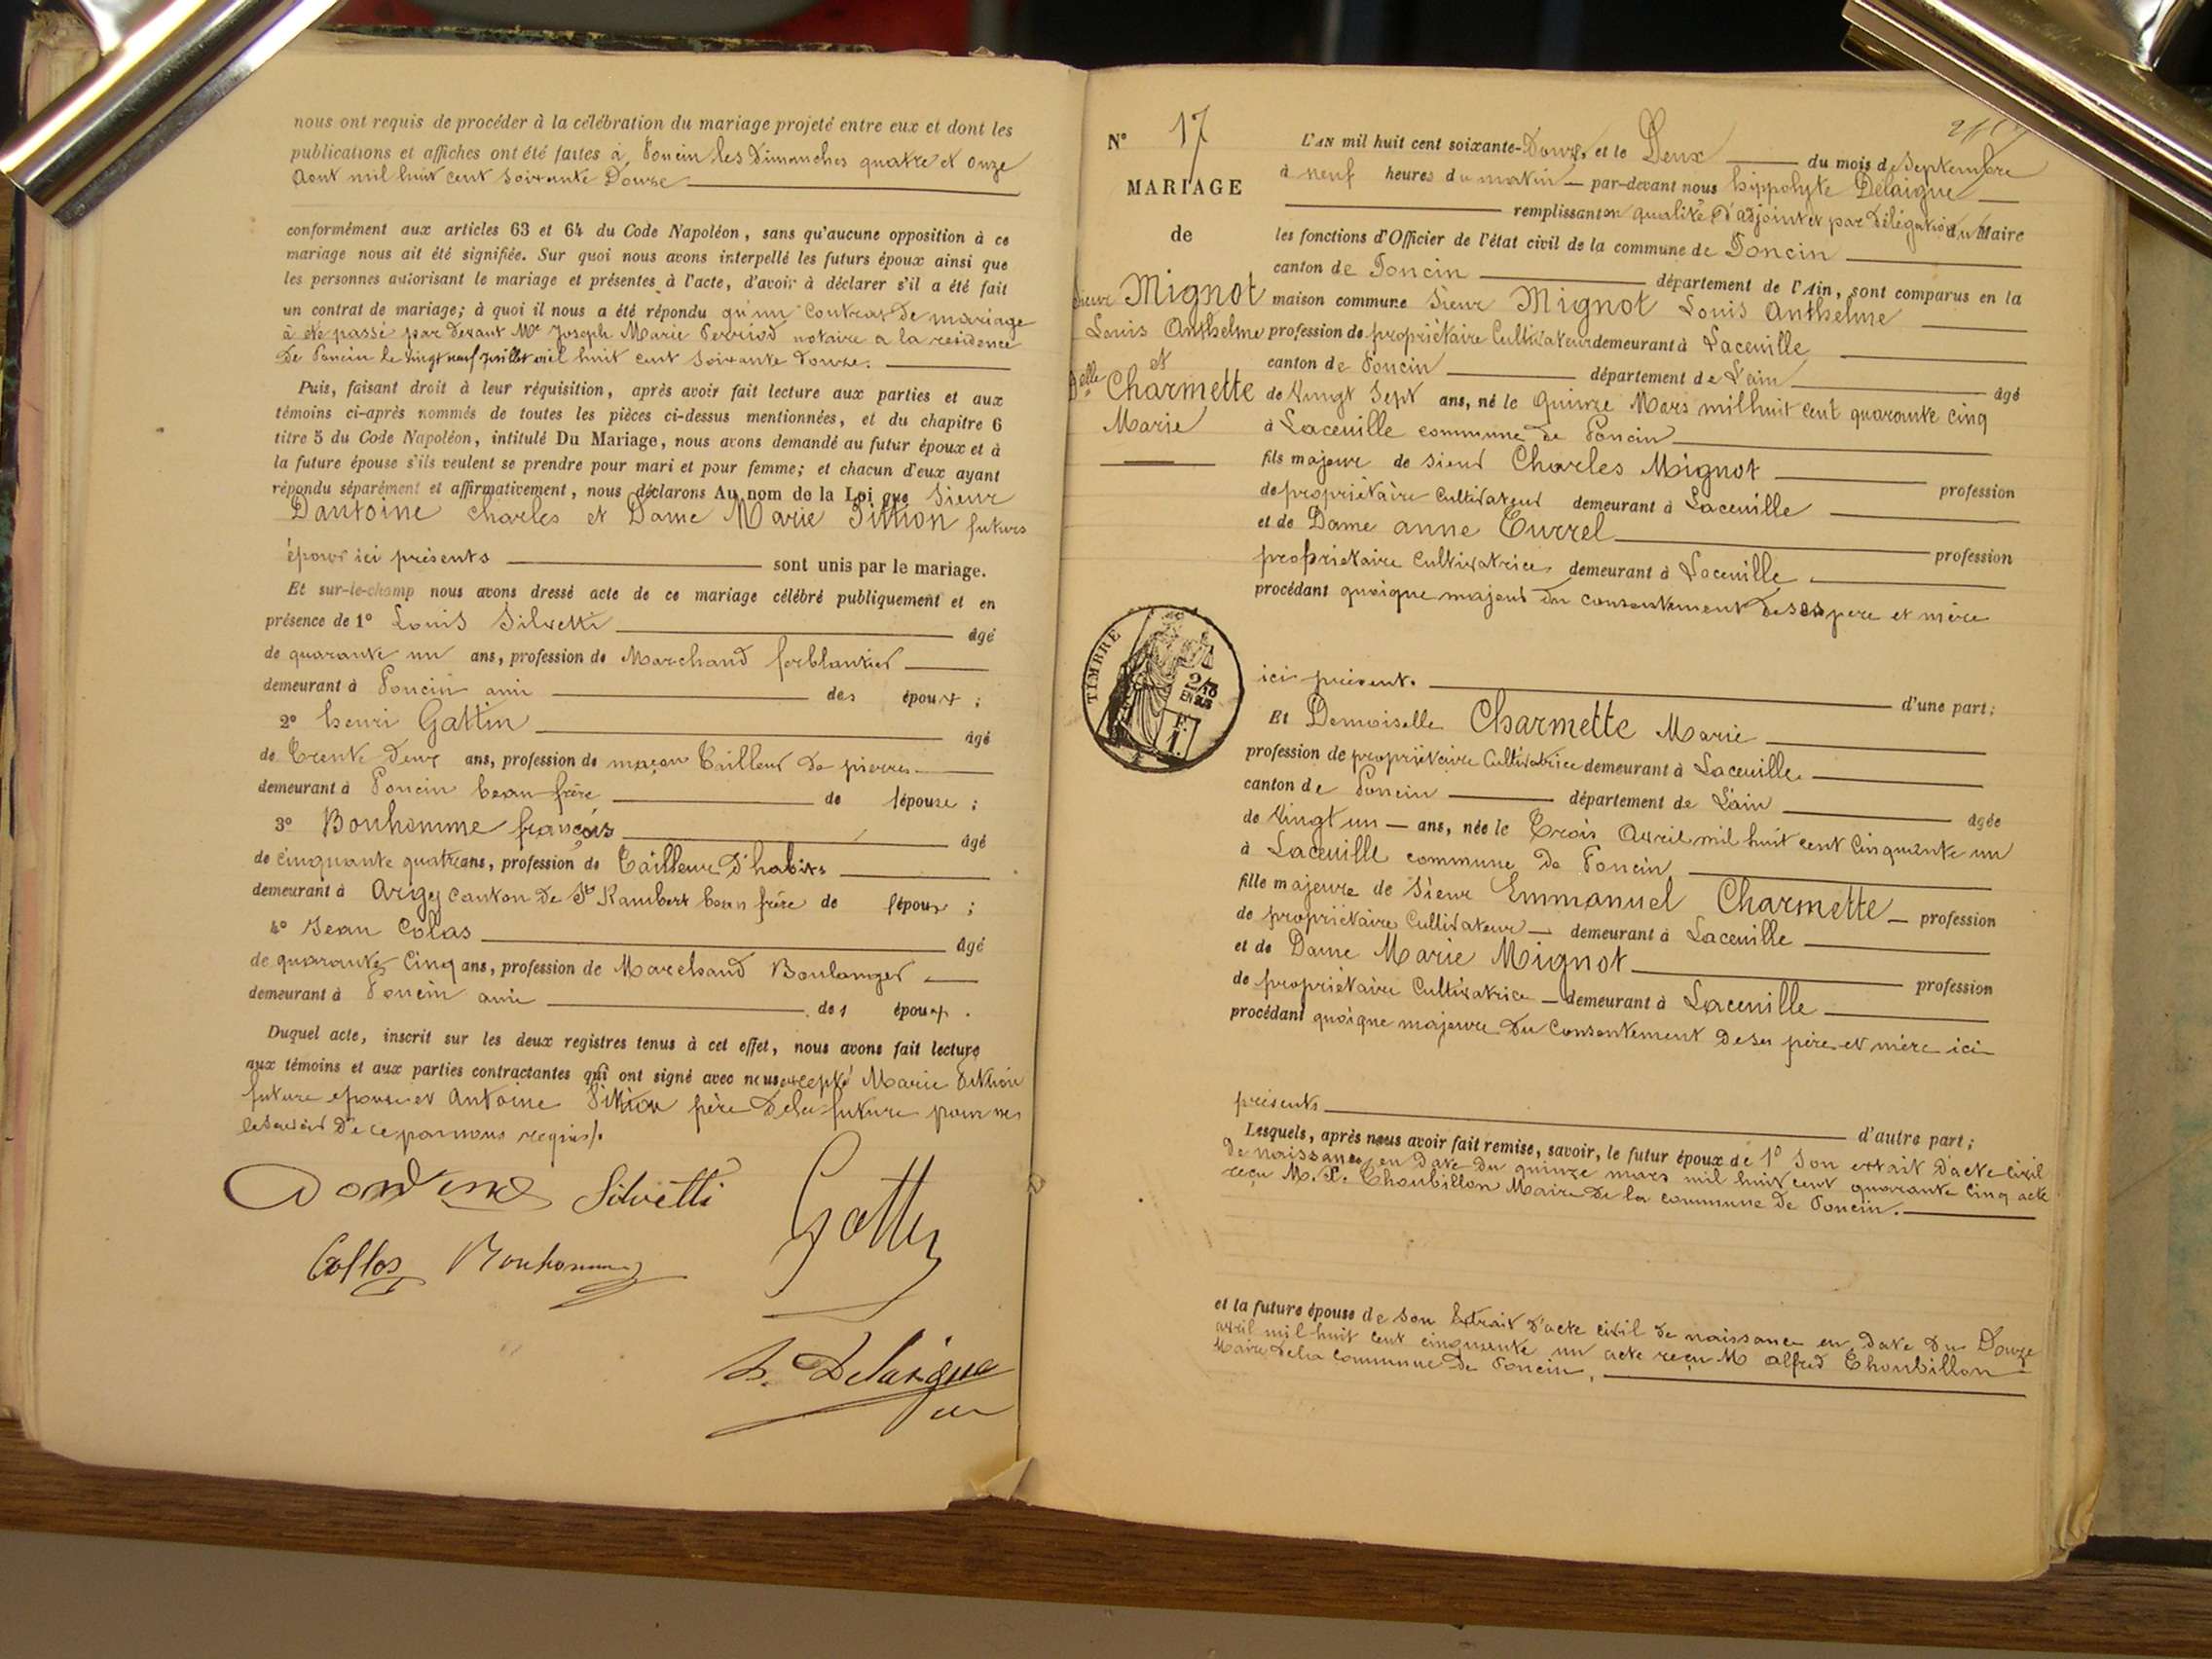 nous ont requis de procéder à la célébration du mariage projeté entre eux et dont les
publications et affiches ont été faites à Poncin, les Dimanches quatre et onze
Aout mil huit cent soixante Douze
conformément aux articles 63 et 64 du Code Napoléon, sans qu'aucune opposition à ce
mariage nous ait été signifiée. Sur quoi nous avons interpellé les futurs époux ainsi que
les personnes autorisant le mariage et présentes à l'acte, d'avoir à déclarer s'il a été fait
un contrat de mariage; à quoi il nous a été répondu qu'un Contrat De mariage
à été passé par Devant Me Joseph Marie Perriod notaire a la residence
De Poncin le vingt neuf Juillet mil huit cent soixante Douze.
Puis, faisant droit à leur réquisition, après avoir fait lecture aux parties et aux
témoins ci-après nommés de toutes les pièces ci-dessus mentionnées, et du chapitre 6
titre 5 du Code Napoléon, intitulé Du Mariage, nous avons demandé au futur époux et à
la future épouse s'ils veulent se prendre pour mari et pour femme; et chacun d'eux ayant
répondu séparément et affirmativement, nous déclarons Au nom de la Loi que Sieur
Dantoine Charles et Dame Marie Pittion futurs
époux ici présents sont unis par le mariage.
Et sur-le-champ nous avons dressé acte de ce mariage célébré publiquement et en
présence de 1° Louis Silvetti âgé
de quarante un ans, profession de Marchand ferblantier
demeurant à Poncin ami des époux ;
2° henri Gattin âgé
de Trente Deux ans, profession de maçon Tailleur De pierres
demeurant à Poncin beau-frère de l'épouse ;
3° Bonhomme françois âgé
de Cinquante quatre ans, profession de Tailleur D'habits
demeurant à Argis Canton De St Rambert beau frère de l'époux ;
4° Jean Colas âgé
de quarante Cinq ans, profession de Marchand Boulanger
demeurant à Poncin ami des époux .
Duquel acte, inscrit sur les deux registres tenus à cet effet, nous avons fait lecture
aux témoins et aux parties contractantes qui ont signé avec nous excepté Marie Pittion
future epouse et Antoine Pittion père Dela future pour ne
le savoir De ce par nous requis/.
Dantoine Silvetti Gattin
Collas Bonhomme
h. Delaigue
N° 17
MARIAGE
de
Sieur Mignot
Louis Anthelme
et
Delle Charmette
Marie
L'AN mil huit cent soixante-Douze, et le Deux du mois de Septembre
à neuf heures du matin par-devant nous hippolyte Delaigue
remplissant en qualité D'adjoint et par Délégation du Maire
les fonctions d'Officier de l'état civil de la commune de Poncin
canton de Poncin département de l'Ain, sont comparus en la
maison commune Sieur Mignot Louis Anthelme
profession de propriétaire Cultivateur demeurant à Laceuille
canton de Poncin département de L'ain âgé
de Vingt Sept ans, né le Quinze Mars mil huit Cent quarante cinq
à Laceuille commune De Poncin
fils majeur de Sieur Charles Mignot profession
de propriétaire Cultivateur demeurant à Laceuille
et de Dame anne Turrel profession
propriétaire Cultivatrice demeurant à Laceuille
procédant quoique majeur Du Consentement De ses pere et mère
TIMBRE
2/10
EN SUS
ici présents. d'une part;
Et Demoiselle Charmette Marie
profession de propriétaire Cultivatrice demeurant à Laceuille
canton de Poncin département de L'ain âgée
de Vingt un ans, née le Trois Avril mil huit cent Cinquante un
à Laceuille commune De Poncin
fille majeure de Sieur Emmanuel Charmette profession
de propriétaire Cultivateur demeurant à Laceuille
et de Dame Marie Mignot profession
de propriétaire Cultivatrice demeurant à Laceuille
procédant quoique majeure Du Consentement De ses père et mère ici
présents d'autre part;
Lesquels, après nous avoir fait remise, savoir, le futur époux de 1° Son extrait D'acte Civil
De naissance, en Date Du quinze mars mil huit cent quarante Cinq acte
reçu M. P. Thoubillon Maire De la commune De Poncin.
et la future épouse de Son Extrait D'acte civil De naissance en Date Du Douze
avril mil huit cent cinquante un acte reçu M alfred Thoubillon
Maire Dela Commune De Poncin.